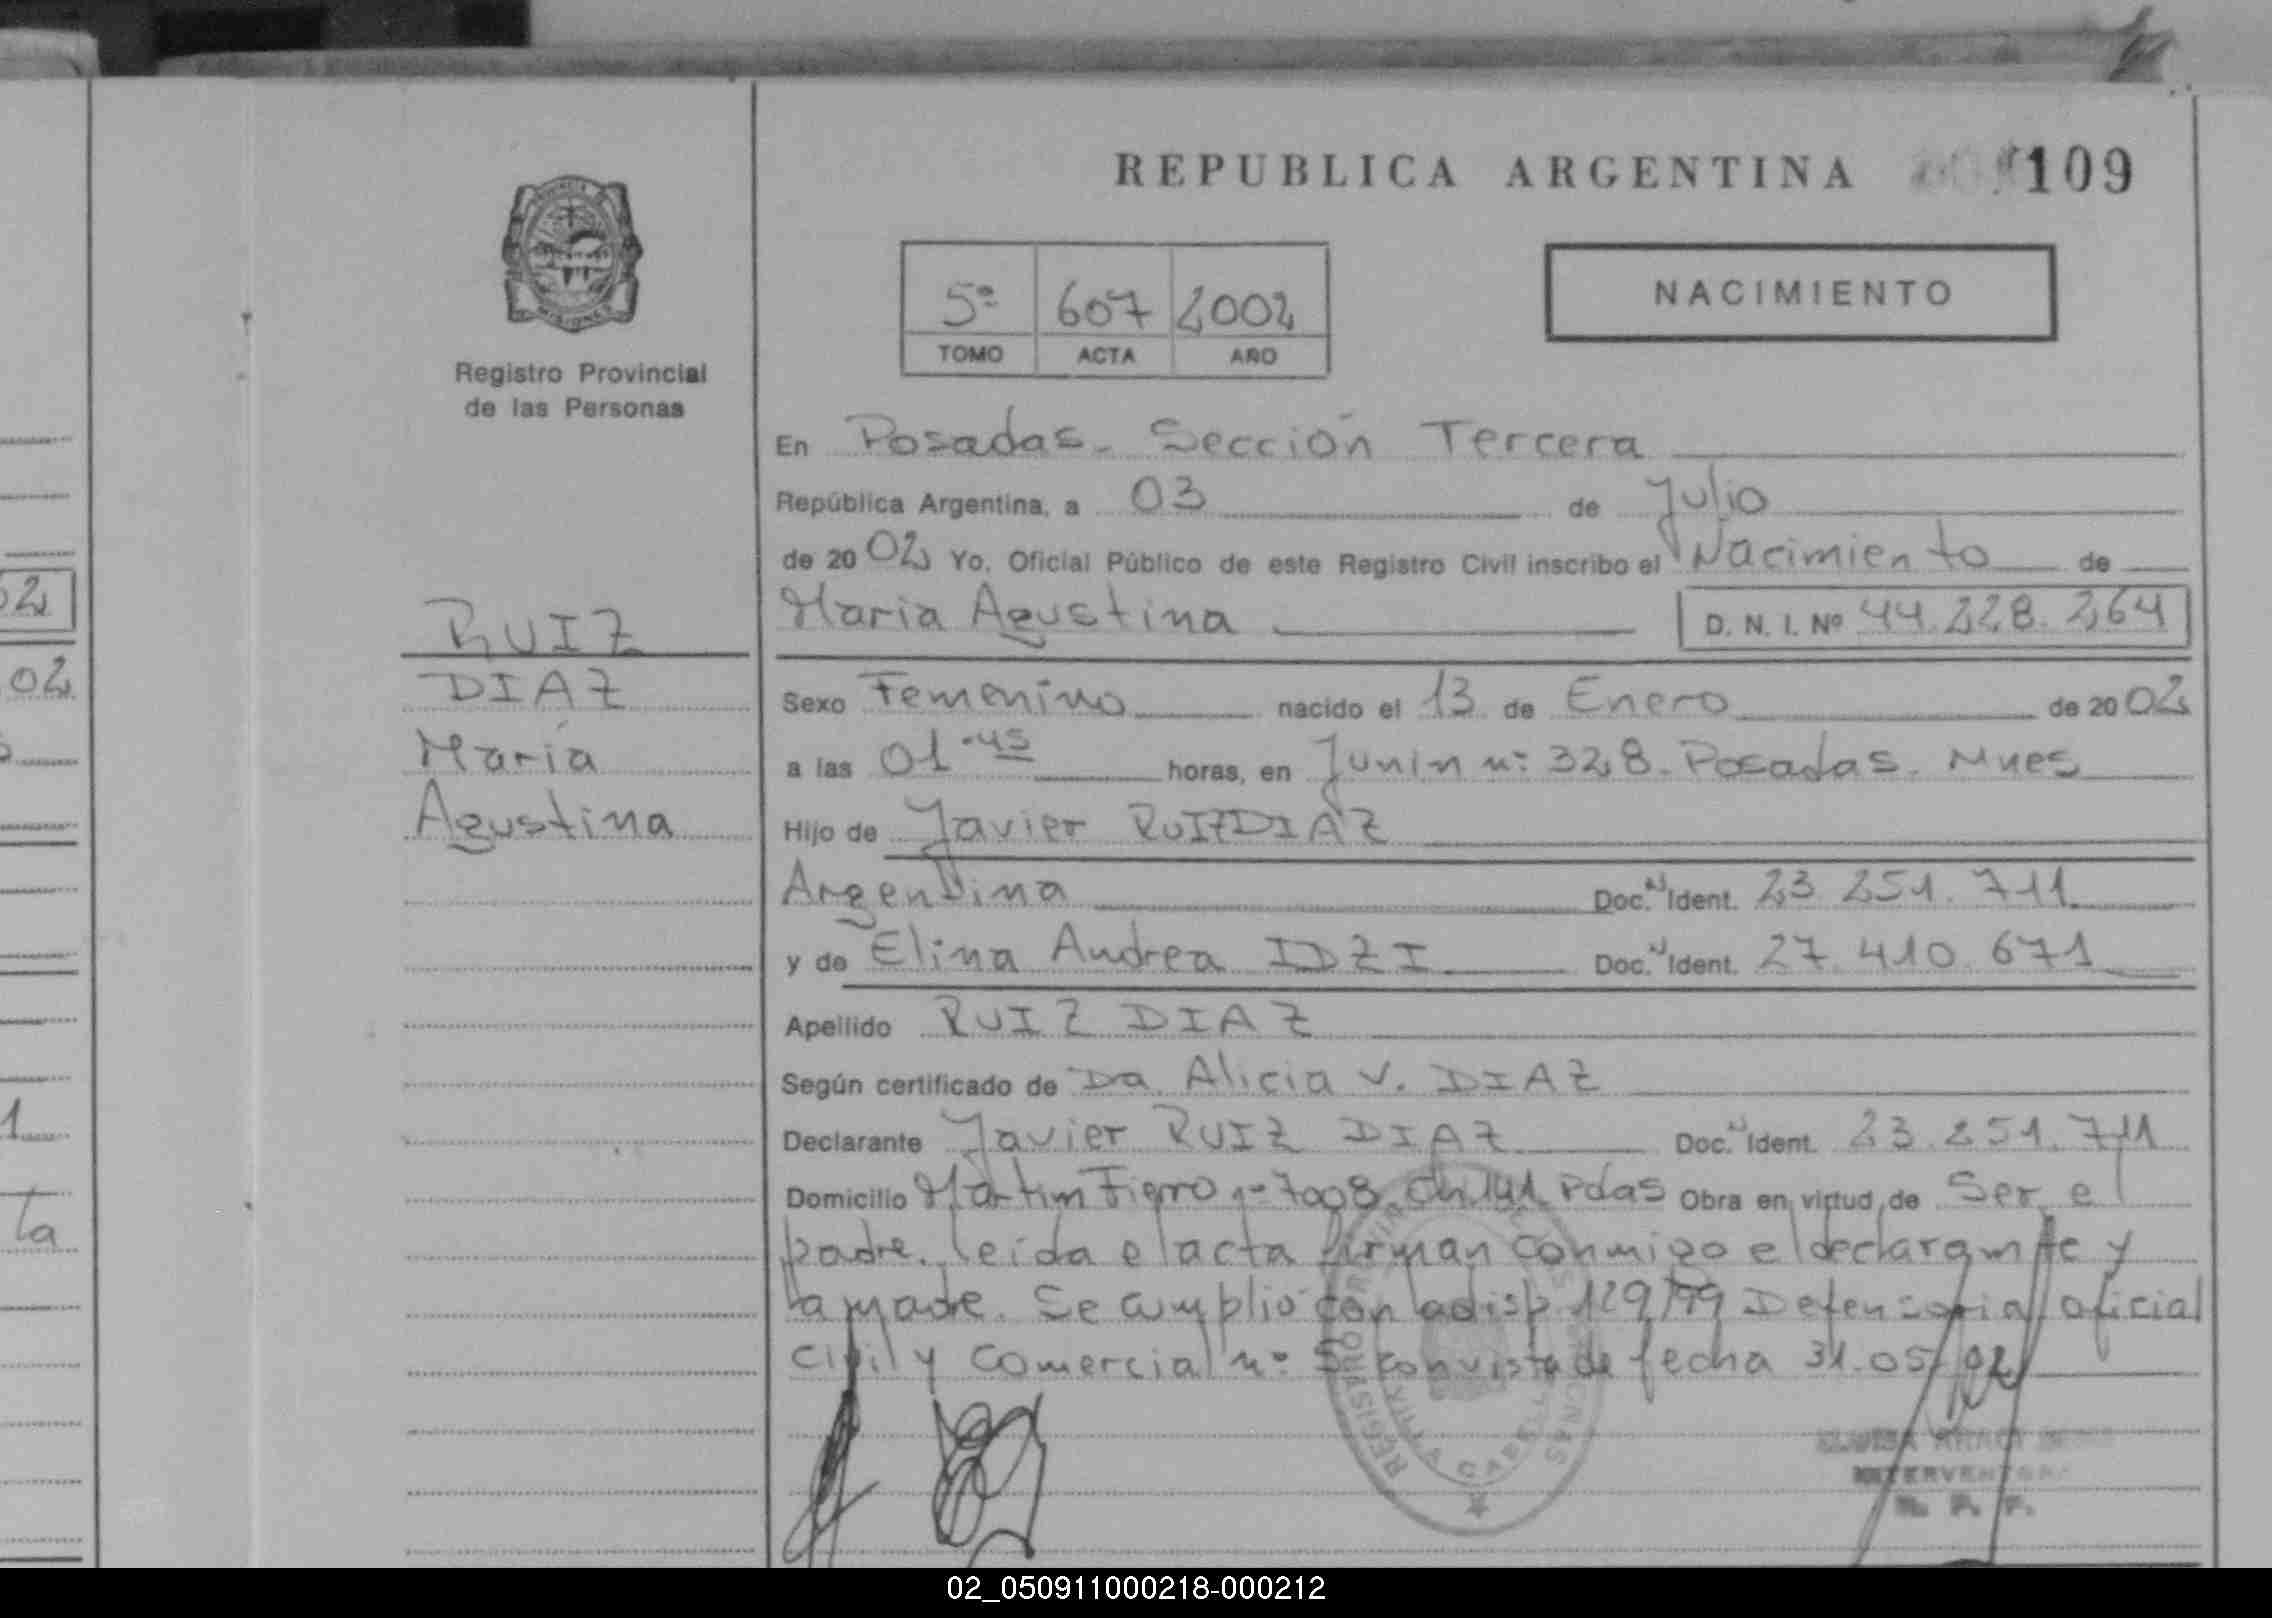 REPUBLICA ARGENTINA 109
PROVINCIA
MISIONES
Registro Provincial
de las Personas
5º 607 2002
TOMO ACTA AÑO
NACIMIENTO
En Posadas. Sección Tercera
República Argentina, a 03 de Julio
de 20 02 Yo, Oficial Público de este Registro Civil inscribo el Nacimiento de
Maria Agustina D. N. I. Nº 44.228.264
RUIZ
DIAZ
María
Agustina
Sexo Femenino nacido el 13 de Enero de 20 02
a las 01.45 horas, en Junin nº 328. Posadas. Mnes
Hijo de Javier RUIZ DIAZ
Argentina Doc. Ident. 23 251. 711
y de Elina Andrea IDZI Doc. Ident. 27. 410. 671
Apellido RUIZ DIAZ
Según certificado de Dra. Alicia V. DIAZ
Declarante Javier RUIZ DIAZ Doc. Ident. 23.251.711
Domicilio Martin Fierro nº 7008 Ch. 141 Pdas Obra en virtud de Ser el
padre. leida el acta firman conmigo el declarante y
la madre. Se cumplió con la disp 129/99 Defensoria oficial
Civil y Comercial nº 5 con vista de fecha 31.05/02
INTERVENTORA
02
02
1
ta
02_050911000218-000212